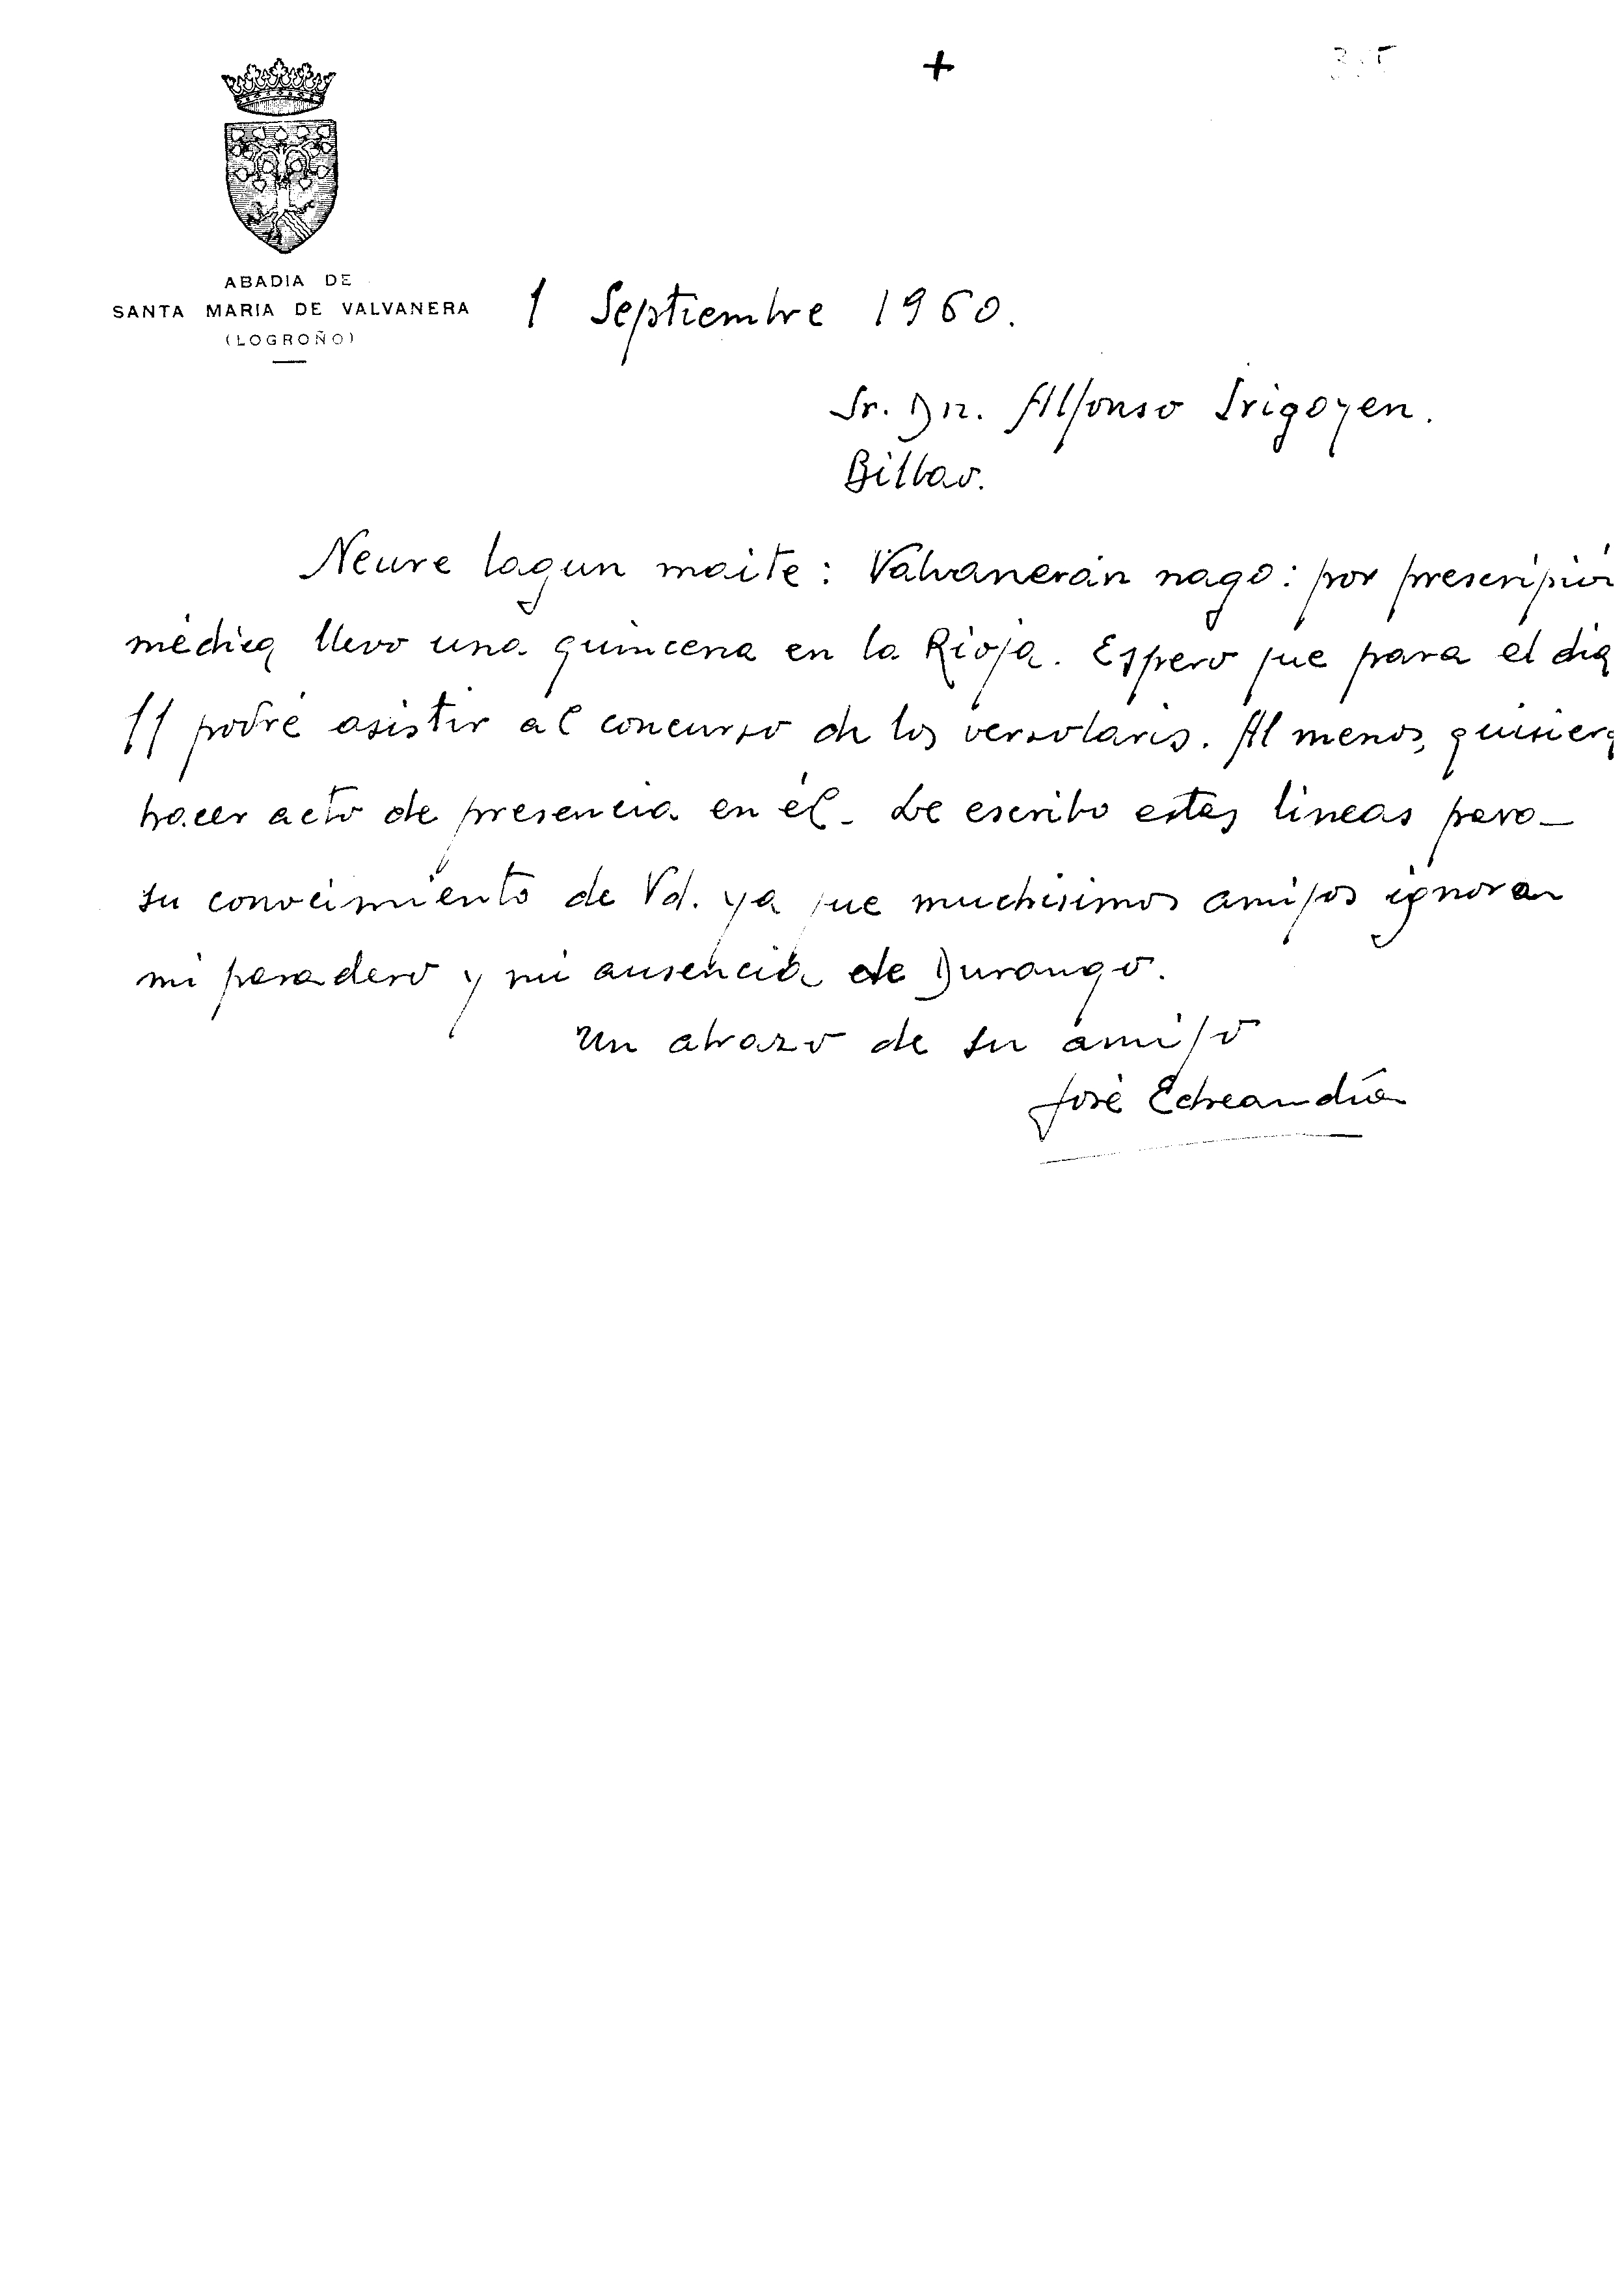 +
ABADIA DE
SANTA MARIA DE VALVANERA
(LOGROÑO)
1 Septiembre 1960.
Sr. Dn. Alfonso Irigoyen.
Bilbao.
Neure lagun maite: Valvanerán nago: por prescripción
médica llevo una quincena en la Rioja. Espero que para el dia
11 podré asistir al concurso de los versolaris. Al menos, quisiera
hacer acto de presencia en él - Le escribo estas lineas para
su conocimiento de Vd. ya que muchisimos amigos ignoran
mi paradero y mi ausencia de Durango.
Un abrazo de su amigo
José Echeandía